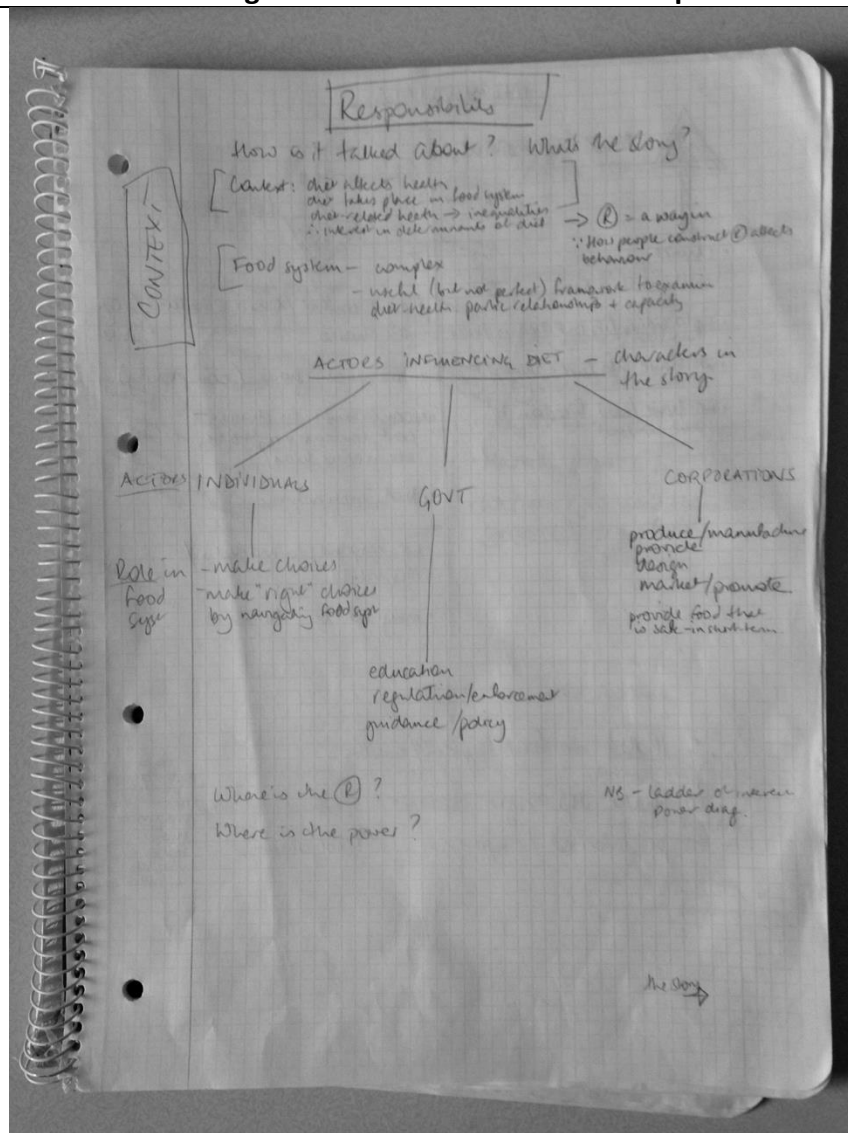 Responsibility
How is it talked about? What's the story?
CONTEXT
[Context: diet affects health
diet takes place in food system
diet-related health → inequalities
∴ interest in determinants of diet]
→ Ⓡ = a way in
∵ How people construct Ⓡ affects
behaviour
[Food system - complex
- useful (but not perfect) framework to examine
diet-health partic relationships + capacity
ACTORS INFLUENCING DIET - characters in
the story
ACTORS INDIVIDUALS
GOVT
CORPORATIONS
Role in
food
syst
- make choices
- make "right" choices
by navigating food syst
produce/manufacture
provide
design
market/promote
provide food that
is safe - in short term
education
regulation/enforcement
guidance/policy
Where is the Ⓡ?
Where is the power?
NB - ladder of interven
power diag.
the story →